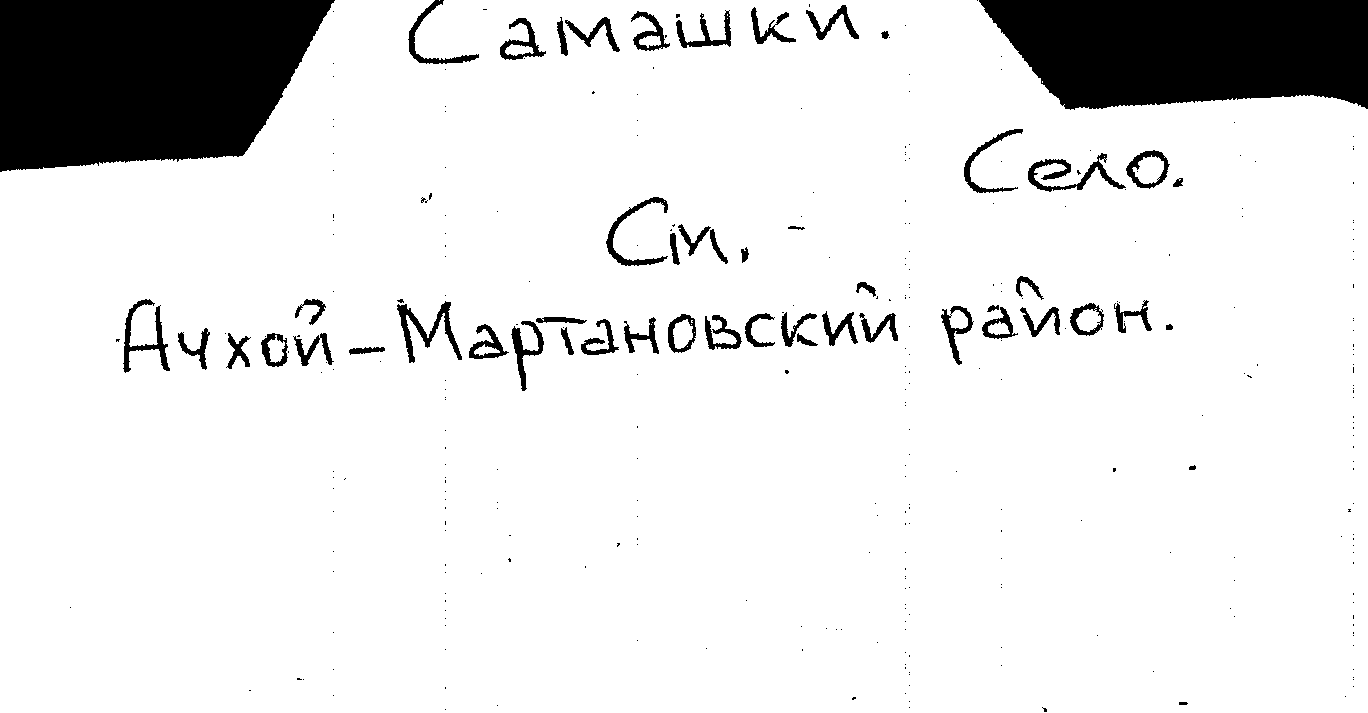 Самашки.
Село.
См.
Ачхой-Мартановский район.